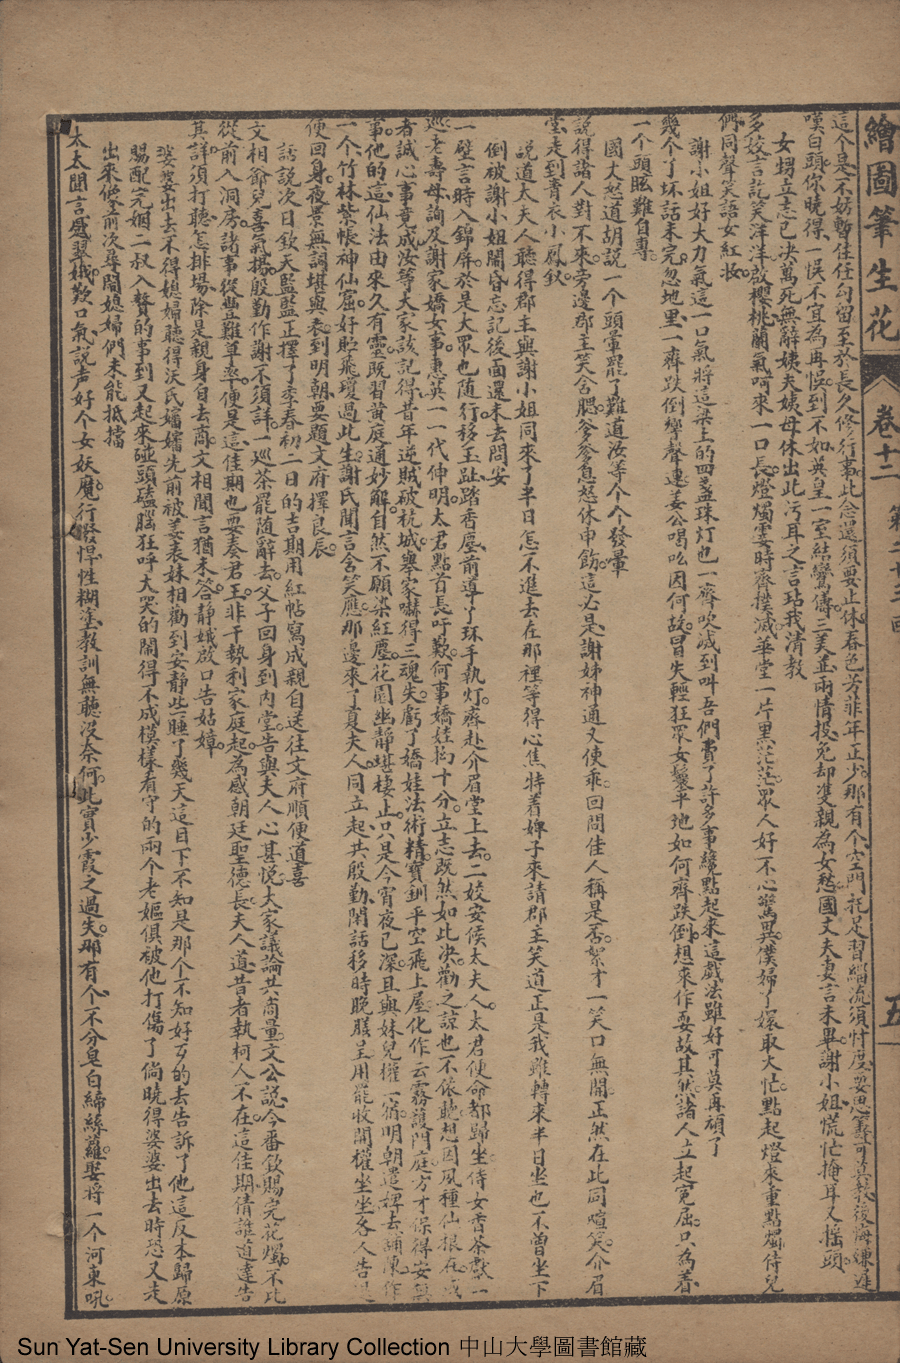 繪圖筆生花 卷十二 第二十三回 五
這个是不妨暫住任勾留至於長久修行事此念還須要止休春色芳菲年正少那有个空門託足習緇流須忖度要思籌可莫教後悔嗹遲
嘆白頭你曉得一悞不宜為再悞到不如英皇一室結鸞儔三美並兩情投免却雙親為女愁國丈夫妻言未畢謝小姐慌忙掩耳又搖頭
女甥立志已决萬死無辭姨夫姨母休出此污耳之言玷我清教
多姣言訖笑洋洋啟櫻桃蘭氣呵來一口長燈燭霎時齊撲滅華堂一片黑茫茫眾人好不心驚異僕婦丫嬛取火忙點起燈來重點燭侍兒
們同聲笑語女紅妝
謝小姐好大力氣這一口氣將這梁上的四盞珠灯也一齊吹滅到叫吾們費了許多事纔點起來這戲法雖好可莫再頑了
幾个丫环話未完忽地里一齊跌倒孿聲連姜公喝吆因何故冒失輕狂眾女鬟平地如何齊跌倒想來作耍故其然諸人立起寃屈只為着
一个頭眩難自專
國丈怒道胡說一个頭暈罷了難道汝等个个發暈
說得諸人對不來旁邊郡主笑含腮爹爹息怒休申飭這必是謝姊神通又使乖回問佳人稱是否絮才一笑口無開正然在此同喧笑介眉
堂走到青衣小鳳釵
說道太夫人聽得郡主與謝小姐同來了半日怎不進去在那裡等得心焦特着婢子來請郡主笑道正是我雖轉來半日坐也不曾坐下
倒被謝小姐鬧昏忘記後面還未去問安
一壁言時入錦屏於是大眾也随行移玉趾踏香塵前導丫环手執灯齊赴介眉堂上去二姣安候太夫人太君便命都歸坐侍女香茶獻一
巡老壽母詢及謝家嬌女事惠英一一代伸明太君點首長吁歎何事嬌娃拘十分立志既然如此决勸之諒也不依聽想因夙種仙根在或
者誠心事竟成汝等大家該記得昔年逆賊破杭城舉家嚇得三魂失虧了嬌娃法術精寶釧乎空飛上屋化作云霧護門庭方才保得安無
事他的這仙法由來久有靈既習黄庭通妙解自然不願染紅塵花園幽靜堪棲止只是今宵夜已深且與妹兒權一宿明朝遣婢去鋪陳作
一个竹林紫帳神仙屈好貯飛瓊過此生謝氏聞言含笑應那邊來了貢夫人同立起共殷勤閒話移時晚膳呈用罷收開權坐坐各人告退
便回身夜景無詞堪與表到明朝要題文府擇良辰
話說次日欽天監監正擇了季春初二日的吉期用紅帖寫成親自送往文府順便道喜
文相爺兒喜氣揚殷勤作謝不須詳一巡茶罷随辭去父子回身到內堂告與夫人心甚悦大家議論共商量文公説今番欽賜完花燭不比
從前入洞房諸事從豐難草率便是這佳期也要奏君王非干勢利家庭起為感朝廷聖德長夫人道昔者執柯人不在這佳期倩誰道達告
其詳須打聽怎排場除是親身自去商文相聞言猶未答静娥啟口告姑嫜
婆婆出去不得媳婦聽得沃氏嬸嬸先前被姜表妹相勸到安靜些睡了幾天這目下不知是那个不知好歹的去告訴了他這反本歸原
賜配完姻二叔入贅的事到又起來碰頭磕腦狂呼大哭的鬧得不成模樣看守的兩个老嫗俱被他打傷了倘曉得婆婆出去時恐又走
出來像前次尋鬧媳婦們未能抵擋
太太聞言感翠娥歎口氣說声好个女妖魔行咎悍性糊塗教訓無聽没奈何此實少霞之過失那有个不分皂白締絲蘿娶將一个河東吼
Sun Yat-Sen University Library Collection 中山大學圖書館藏